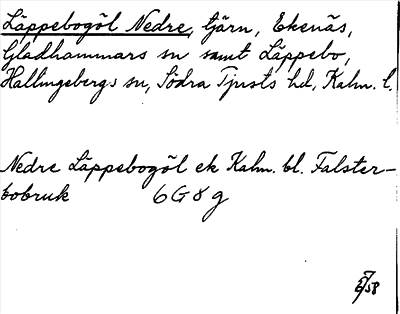 Läppebogöl Nedre, tjärn, Ekenäs,
Gladhammars sn samt Läppebo,
Hallingebergs sn, Södra Tjusts hd, Kalm. l.
Nedre Läppebogöl ek Kalm. bl. Falster-
bobruk 6G8g